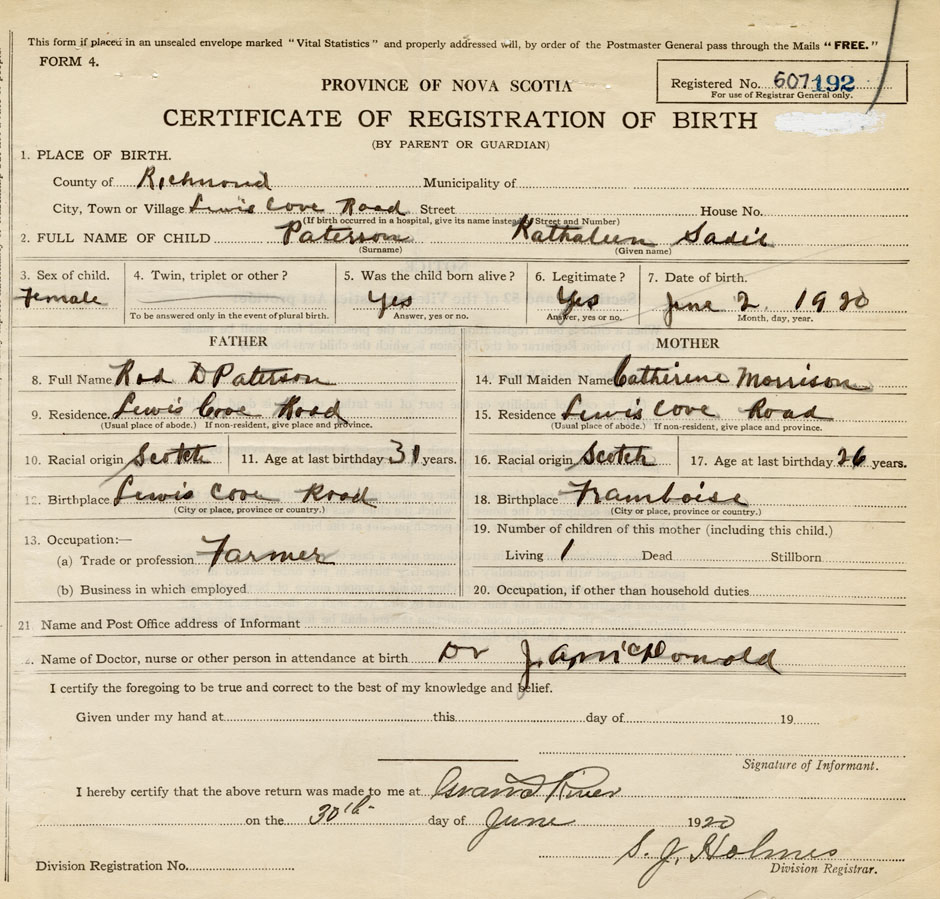 This form if placed in an unsealed envelope marked "Vital Statistics" and properly addressed will, by order of the Postmaster General pass through the Mails "FREE."
FORM 4.
Registered No. 607192
For use of Registrar General only.
PROVINCE OF NOVA SCOTIA
CERTIFICATE OF REGISTRATION OF BIRTH
(BY PARENT OR GUARDIAN)
1. PLACE OF BIRTH.
County of Richmond Municipality of
City, Town or Village Lewis Cove Road Street House No.
(If birth occurred in a hospital, give its name instead of Street and Number)
2. FULL NAME OF CHILD Paterson Kathaleen Sadie
(Surname) (Given name)
3. Sex of child. 4. Twin, triplet or other? 5. Was the child born alive? 6. Legitimate? 7. Date of birth.
Female Yes Yes June 2 1920
To be answered only in the event of plural birth. Answer, yes or no. Answer, yes or no. Month, day, year.
FATHER MOTHER
8. Full Name Rod D Paterson 14. Full Maiden Name Catherine Morrison
9. Residence. Lewis Cove Road 15. Residence Lewis Cove Road
(Usual place of abode.) If non-resident, give place and province. (Usual place of abode.) If non-resident, give place and province.
10. Racial origin Scotch 11. Age at last birthday 31 years. 16. Racial origin Scotch 17. Age at last birthday 26 years.
12. Birthplace Lewis Cove Road 18. Birthplace Framboise
(City or place, province or country.) (City or place, province or country.)
13. Occupation:— 19. Number of children of this mother (including this child.)
(a) Trade or profession Farmer Living 1 Dead Stillborn
(b) Business in which employed 20. Occupation, if other than household duties
21. Name and Post Office address of Informant
2. Name of Doctor, nurse or other person in attendance at birth Dr J. A. McDonald
I certify the foregoing to be true and correct to the best of my knowledge and belief.
Given under my hand at this day of 19
Signature of Informant.
I hereby certify that the above return was made to me at Grand River
on the 30th day of June 1920
S. J. Holmes
Division Registration No. Division Registrar.